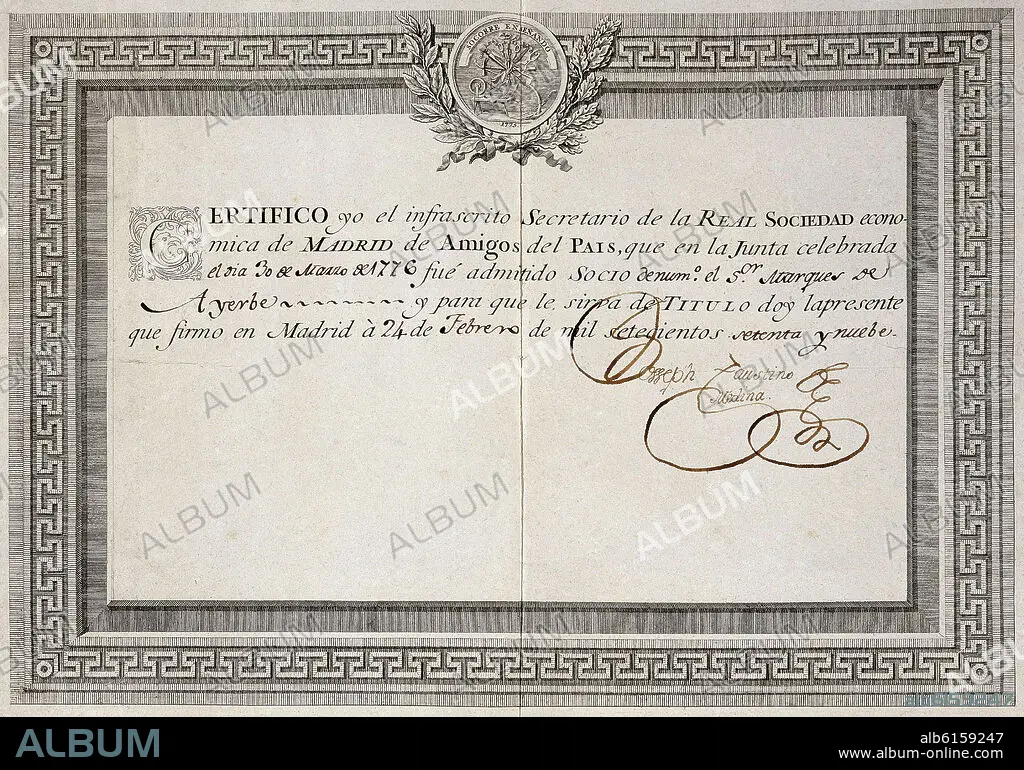 SOCORRE ENSEÑANDO
1775.
CERTIFICO yo el infrascrito Secretario de la REAL SOCIEDAD econo-
mica de MADRID de Amigos del PAIS, que en la Junta celebrada
el dia 30 de Marzo de 1776 fué admitido SOCIO de num.º el S.ºr Marques de
Ayerbe y para que le sirva de TITULO doy la presente
que firmo en Madrid à 24 de Febrero de mil setecientos setenta y nuebe.
Josseph Faustino
Medina.
ALBUM
ab6159247
www.album-online.com